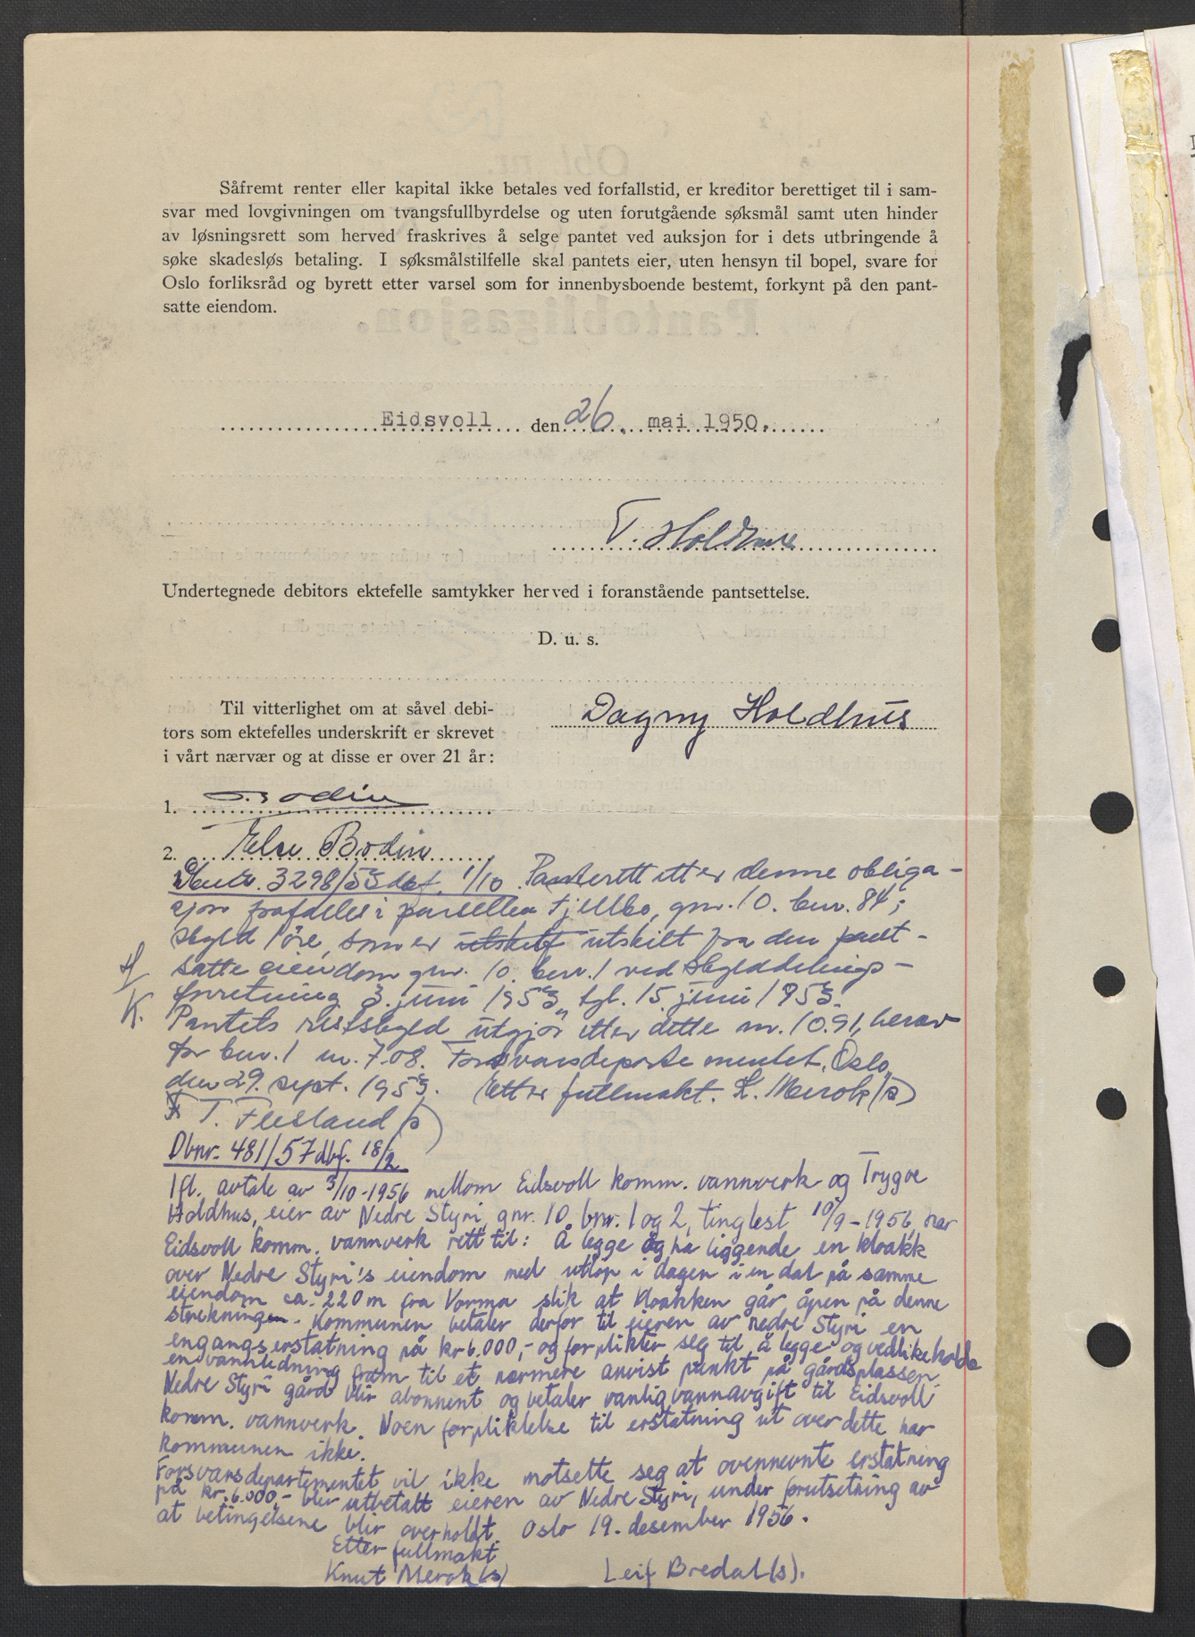 Såfremt renter eller kapital ikke betales ved forfallstid, er kreditor berettiget til i sam-
svar med lovgivningen om tvangsfullbyrdelse og uten forutgående søksmål samt uten hinder
av løsningsrett som herved fraskrives å selge pantet ved auksjon for i dets utbringende å
søke skadesløs betaling. I søksmålstilfelle skal pantets eier, uten hensyn til bopel, svare for
Oslo forliksråd og byrett etter varsel som for innenbysboende bestemt, forkynt på den pant-
satte eiendom.
Eidsvoll den 26. mai 1950.
T. Holdhus
Undertegnede debitors ektefelle samtykker herved i foranstående pantsettelse.
D. u. s.
Dagny Holdhus
Til vitterlighet om at såvel debi-
tors som ektefelles underskrift er skrevet
i vårt nærvær og at disse er over 21 år:
1. Bodin
2. Else Bodin
3298/53 dbf. 1/10. Panterett etter denne obliga-
sjon frafalles i parsellen Fjellbo, gnr. 10. bnr. 84;
skyld 1 øre, som er utskilt utskilt fra den pant-
satte eiendom gnr. 10. bnr. 1 ved skylddelings-
forretning 3. juni 1953, tgl. 15. juni 1953.
K.
Pantets restskyld utgjør etter dette m. 10.91, herav
for bnr. 1 m. 7.08. Forsvarsdepartementet, Oslo,
den 29. sept. 1953. Etter fullmakt. K. Merok (s)
T. Flisland (s)
Dbnr. 481/57 dbf. 18/2
Ifl. avtale av 3/10-1956 mellom Eidsvoll komm. vannverk og Trygve
Holdhus, eier av Nedre Styri, gnr. 10. bnr. 1 og 2, tinglest 10/9-1956, har
Eidsvoll komm. vannverk rett til: Å legge og ha liggende en kloakk
over Nedre Styri's eiendom med utløp i dagen i en dal på samme
eiendom ca. 220 m fra Vorma slik at kloakken går åpen på denne
strekningen. Kommunen betaler derfor til eieren av nedre Styri en
engangserstatning på kr 6.000,- og forplikter seg til å legge og vedlikeholde
en vannledning fram til et nærmere anvist punkt på gårdsplassen.
Nedre Styri gård blir abonnent og betaler vanlig vannavgift til Eidsvoll
komm. vannverk. Noen forpliktelse til erstatning ut over dette har
kommunen ikke.
Forsvarsdepartementet vil ikke motsette seg at ovennevnte erstatning
på kr. 6.000,- blir utbetalt eieren av Nedre Styri, under forutsetning av
at betingelsene blir overholdt. Oslo 19. desember 1956.
Etter fullmakt
Knut Merok (s) Leif Bredal (s).